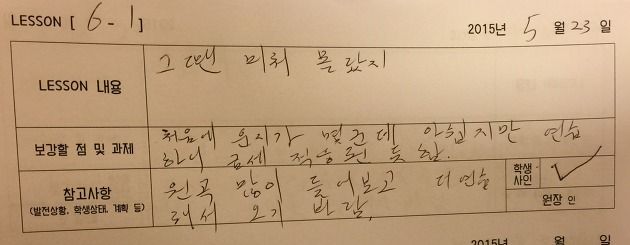 LESSON [ 6-1 ] 2015년 5 월 23 일
LESSON 내용
그땐 미처 몰랐지
보강할 점 및 과제
처음에 운지가 몇건데 아쉽지만 연습
하니 금세 적응된 듯함.
참고사항
(발전상황, 학생상태, 계획 등)
원곡 많이 들어보고 더 연습
해서 오기 바람.
학생
사인
원장 인
2015년 월 일